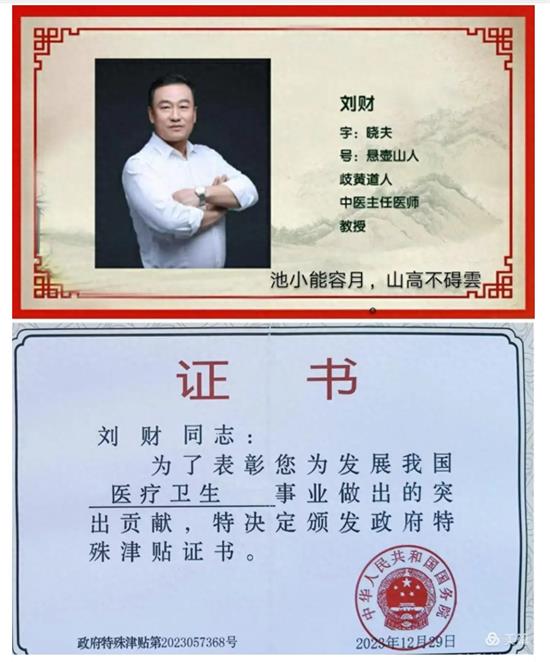 刘财
字：晓夫
号：悬壶山人
歧黄道人
中医主任医师
教授
池小能容月，山高不碍雲
证书
刘财同志：
为了表彰您为发展我国
医疗卫生 事业做出的突
出贡献，特决定颁发政府特
殊津贴证书。
中华人民共和国国务院
政府特殊津贴第2023057368号
2023年12月29日